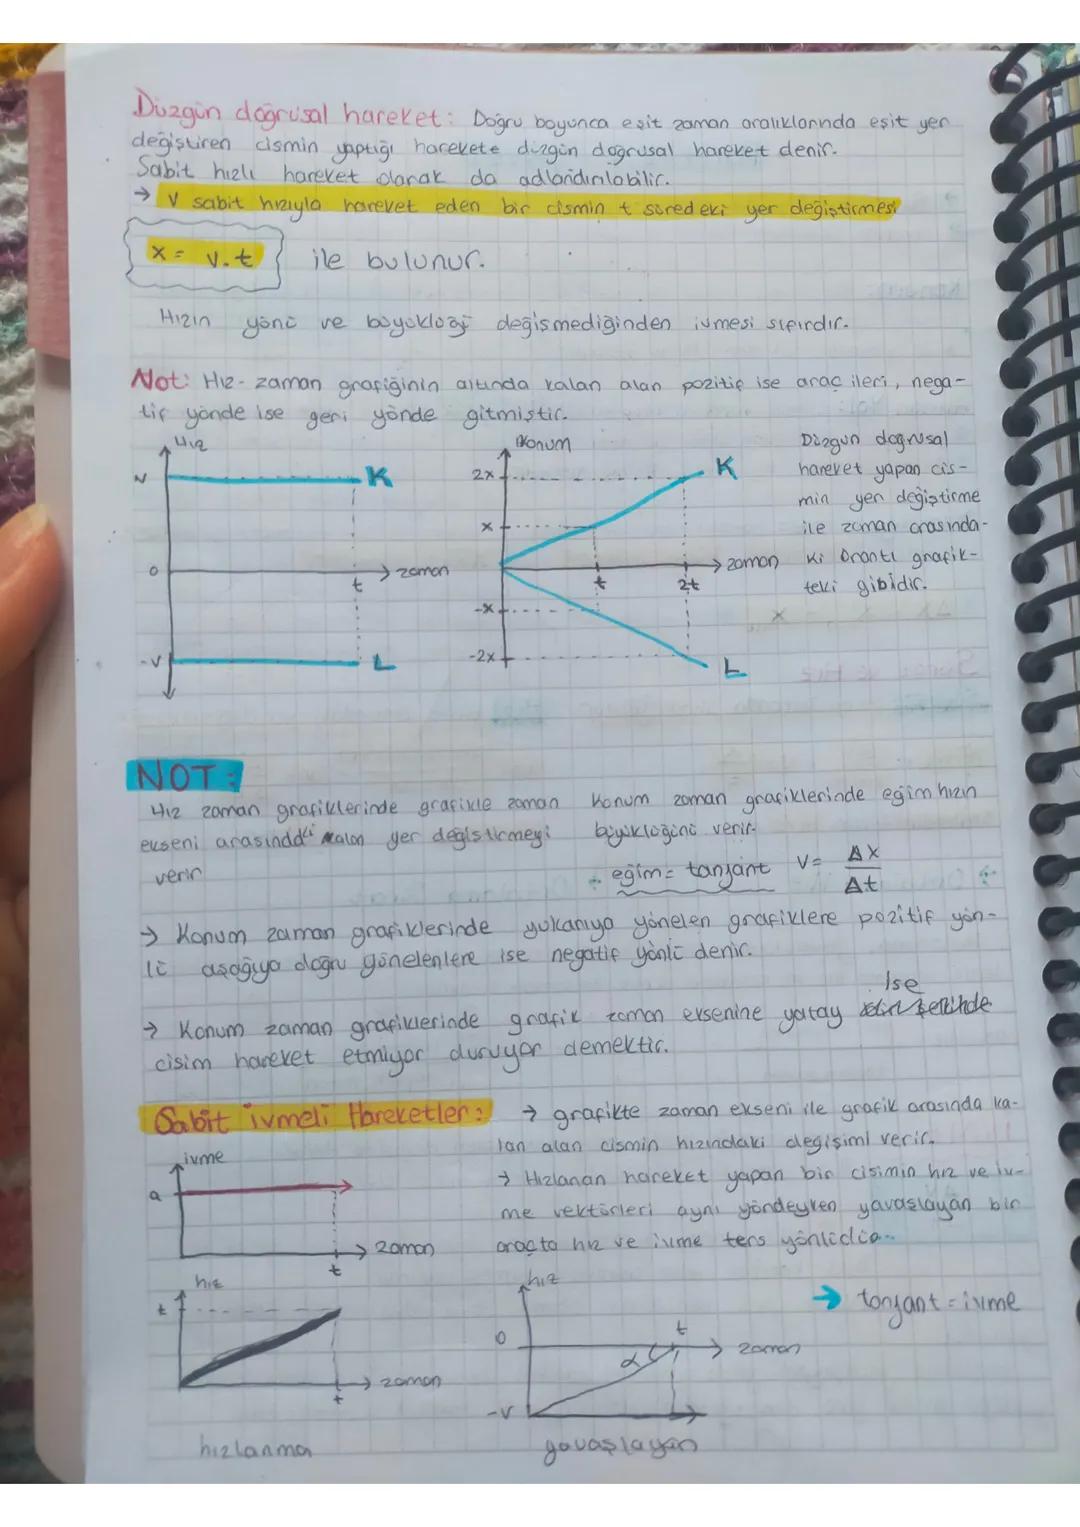 Düzgün doğrusal hareket: Doğru boyunca eşit zaman aralıklarında eşit yer
değiştiren cismin yaptığı harekete düzgün doğrusal hareket denir.
Sabit hızlı hareket olarak da adlandırılabilir.
→ v sabit hızıyla hareket eden bir cismin t süredeki yer değiştirmesi
x = v.t ile bulunur.
Hızın yönü ve büyüklüğü değişmediğinden ivmesi sıfırdır.
Not: Hız-zaman grafiğinin altında kalan alan pozitif ise araç ileri, nega-
tif yönde ise geri yönde gitmiştir.
Hız
v
K
0
zaman
t
-v
L
Konum
2x
K
x
zaman
t
2t
-x
-2x
L
Düzgün doğrusal
hareket yapan cis-
min yer değiştirme
ile zaman arasında-
ki orantı grafik-
teki gibidir.
NOT:
Hız zaman grafiklerinde grafikle zaman
ekseni arasındaki kalan yer değiştirmeyi
verir
Konum zaman grafiklerinde eğim hızın
büyüklüğünü verir.
eğim = tanjant V = Δx
Δt
→ Konum zaman grafiklerinde yukarıya yönelen grafiklere pozitif yön-
lü aşağıya doğru yönelenlere ise negatif yönlü denir.
ise
→ Konum zaman grafiklerinde grafik zaman eksenine yatay
cisim hareket etmiyor duruyor demektir.
Sabit ivmeli Hareketler:
→ grafikte zaman ekseni ile grafik arasında ka-
lan alan cismin hızındaki değişimi verir.
→ Hızlanan hareket yapan bir cisimin hız ve iv-
me vektörleri aynı yöndeyken yavaşlayan bir
araçta hız ve ivme ters yönlüdür.
ivme
a
zaman
t
hız
t
zaman
t
hızlanma
hız
0
t
α
zaman
-v
yavaşlayan
→ tanjant = ivme